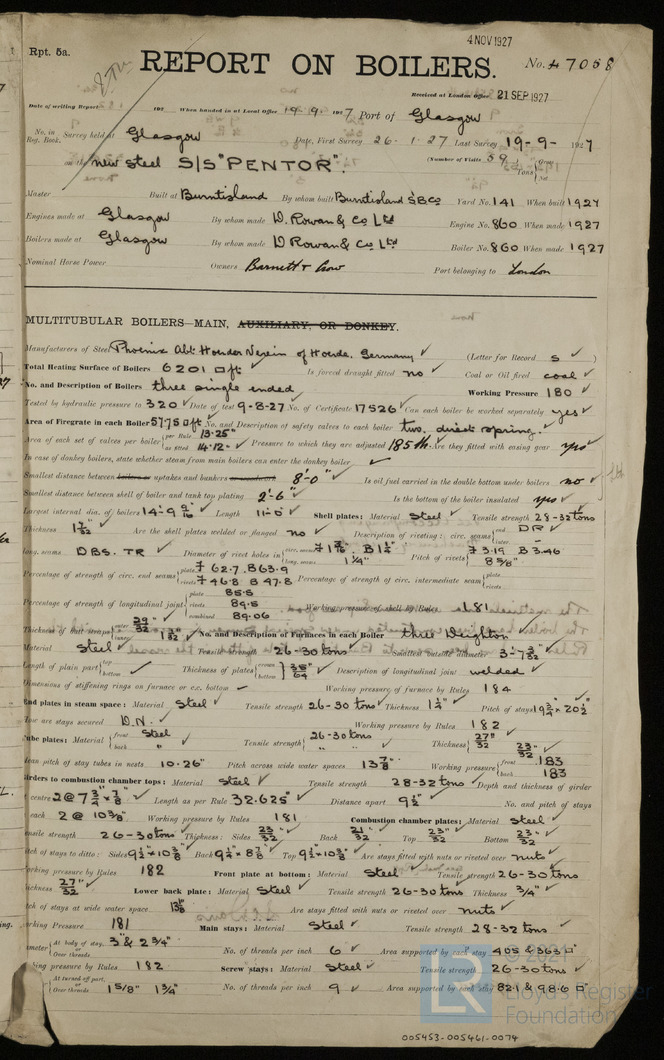 4 NOV 1927
Rpt. 5a.
REPORT ON BOILERS.
No. 47058
Received at London Office 21 SEP 1927
Date of writing Report 192 When handed in at Local Office 19.9.1927 Port of Glasgow
No. in Reg. Book. Survey held at Glasgow Date, First Survey 26.1.27 Last Survey 19-9-1927
on the New Steel S/S "PENTOR". (Number of Visits 59) Tons Gross Net
Master Built at Burntisland By whom built Burntisland S B Co Yard No. 141 When built 1927
Engines made at Glasgow By whom made D. Rowan & Co Ltd Engine No. 860 When made 1927
Boilers made at Glasgow By whom made D Rowan & Co Ltd Boiler No. 860 When made 1927
Nominal Horse Power Owners Barnett & Crow Port belonging to London
MULTITUBULAR BOILERS—MAIN, AUXILIARY, OR DONKEY.
Manufacturers of Steel Phoenix Abt: Hoerder Verein of Hoerde, Germany ✓ (Letter for Record S ✓)
Total Heating Surface of Boilers 6201 □ft ✓ Is forced draught fitted no ✓ Coal or Oil fired coal ✓
No. and Description of Boilers three single ended Working Pressure 180 ✓
Tested by hydraulic pressure to 320 ✓ Date of test 9-8-27 No. of Certificate 17526 ✓ Can each boiler be worked separately yes ✓
Area of Firegrate in each Boiler 57.75 □ft No. and Description of safety valves to each boiler two, direct spring. ✓
Area of each set of valves per boiler per Rule 13.25" as fitted 14.12 ✓ Pressure to which they are adjusted 185 lb. Are they fitted with easing gear yes
In case of donkey boilers, state whether steam from main boilers can enter the donkey boiler ✓
Smallest distance between boilers or uptakes and bunkers 8'-0" ✓ Is oil fuel carried in the double bottom under boilers no ✓
Smallest distance between shell of boiler and tank top plating 2'-6" ✓ Is the bottom of the boiler insulated yes ✓
Largest internal dia. of boilers 14'-9 9/16 ✓ Length 11'-0" ✓ Shell plates: Material Steel ✓ Tensile strength 28-32 tons
Thickness 1 7/32" ✓ Are the shell plates welded or flanged no ✓ Description of riveting: circ. seams end DR ✓ inter. -
long. seams DBS. TR ✓ Diameter of rivet holes in circ. seams F 1 3/16 B 1 1/4" long. seams 1 1/4" Pitch of rivets F 3.19 B 3.46 8 5/8" ✓
Percentage of strength of circ. end seams plate F 62.7 B 63.9 rivets F 46.8 B 47.8 Percentage of strength of circ. intermediate seam plate rivets
Percentage of strength of longitudinal joint plate 85.5 rivets 89.5 combined 89.06 Working pressure of shell by Rules 181
Thickness of butt straps outer 29/32" inner 1 1/32" ✓ No. and Description of Furnaces in each Boiler three Deighton ✓
Material Steel ✓ Tensile strength 26-30 tons ✓ Smallest outside diameter 3'-7 3/32" ✓
Length of plain part top bottom ✓ Thickness of plates crown bottom 35/64" ✓ Description of longitudinal joint welded ✓
Dimensions of stiffening rings on furnace or c.c. bottom – Working pressure of furnace by Rules 184
End plates in steam space: Material Steel ✓ Tensile strength 26-30 tons ✓ Thickness 1 1/4" ✓ Pitch of stays 19 3/4" x 20 1/2" ✓
How are stays secured D.N. ✓ Working pressure by Rules 182
Tube plates: Material front Steel back " Tensile strength 26-30 tons " " Thickness 27/32" ✓ 23/32" ✓
Mean pitch of stay tubes in nests 10.26" Pitch across wide water spaces 13 7/8" Working pressure front 183 back 183
Girders to combustion chamber tops: Material Steel ✓ Tensile strength 28-32 tons ✓ Depth and thickness of girder
centre 2 @ 7 3/4" x 7/8" ✓ Length as per Rule 32.625" Distance apart 9 1/2" ✓ No. and pitch of stays
each 2 @ 10 3/8" ✓ Working pressure by Rules 181 Combustion chamber plates: Material Steel ✓
Tensile strength 26-30 tons ✓ Thickness: Sides 23/32" ✓ Back 21/32" ✓ Top 23/32" ✓ Bottom 23/32" ✓
Pitch of stays to ditto: Sides 9 1/2" x 10 3/8 Back 9 1/4" x 8 7/8" Top 9 1/2" x 10 3/8" ✓ Are stays fitted with nuts or riveted over nuts ✓
Working pressure by Rules 182 Front plate at bottom: Material Steel ✓ Tensile strength 26-30 tons
Thickness 27/32" ✓ Lower back plate: Material Steel ✓ Tensile strength 26-30 tons Thickness 3/4" ✓
Pitch of stays at wide water space 13 5/8" Are stays fitted with nuts or riveted over nuts ✓
Working Pressure 181 Main stays: Material Steel ✓ Tensile strength 28-32 tons
Diameter At body of stay, or Over threads 3" & 2 3/4" No. of threads per inch 6 ✓ Area supported by each stay 405 & 363 □"
Working pressure by Rules 182 Screw stays: Material Steel ✓ Tensile strength 26-30 tons
At turned off part, or Over threads 1 5/8" 1 3/4" ✓ No. of threads per inch 9 ✓ Area supported by each stay 82.1 & 98.6 □"
© 2021
LR Lloyd's Register
Foundation
005453-005461-0074